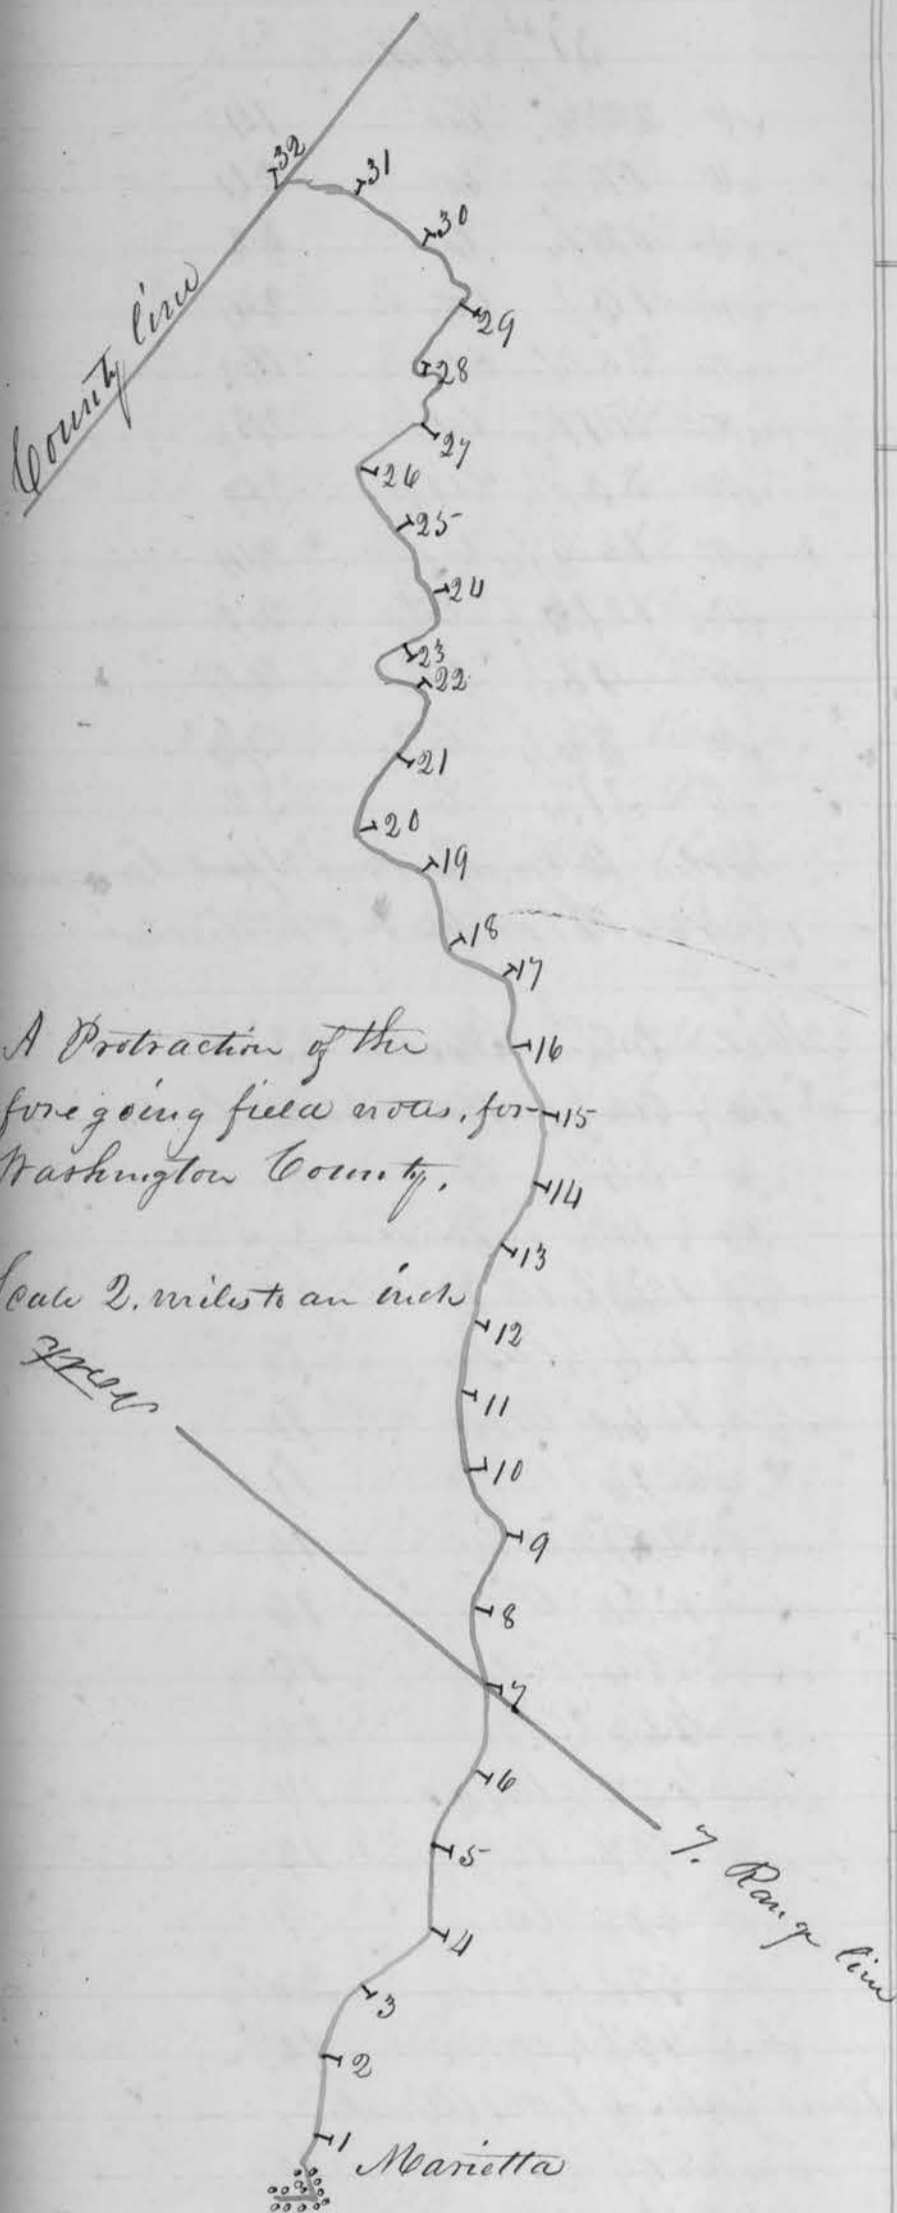 32
31
30
29
28
27
26
25
24
23
22
21
20
19
18
17
16
15
14
13
12
11
10
9
8
7
6
5
4
3
2
1
County line
A Protraction of the
foregoing field notes, for
Washington County.
Scale 2. miles to an inch
North
7. Range line
Marietta